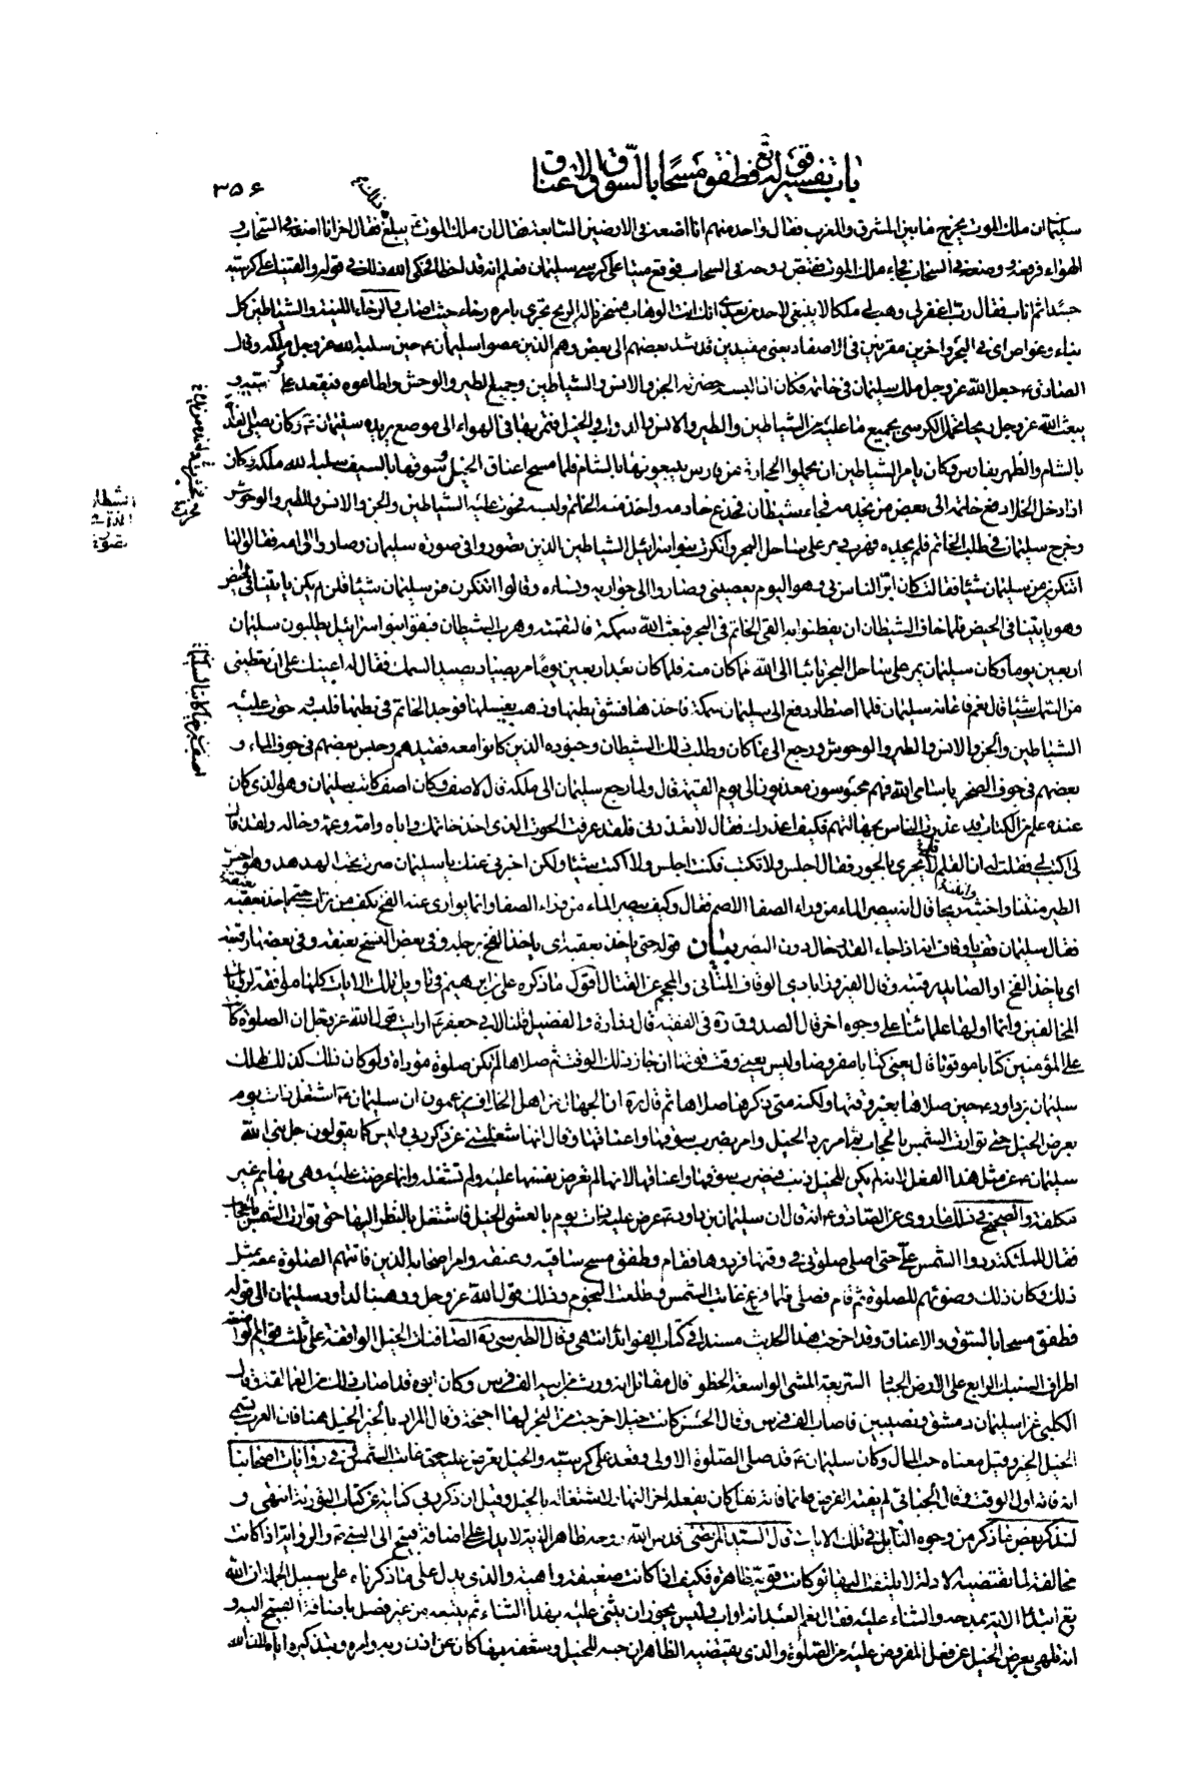 باب تفسير قوله تع فطفق مسحا بالسوق والاعناق
٣٥۶
سليمان ملك الموت يخرج ما بين المشرق والمغرب فقال واحد منهم انا اضعه فى الارضين السابعة فقال ان ملك الموت يبلغ فقال اخر انا اضعه فى السحاب و
الهواء فرفعه و وضعه فى السحاب فجاء ملك الموت فقبض روحه فى السحاب فوقع ميتا على كرسى سليمان فعلم انه قد اخطأ فحكى الله ذلك فى قوله والقينا على كرسيه
جسدا ثم اناب فقال رب اغفر لى وهب لى ملكا لا ينبغى لاحد من بعدى انك انت الوهاب فسخرنا له الريح تجرى بامره رخاء حيث اصاب والرخاء اللينة والشياطين كل
بناء وغواص اى فى البحر واخرين مقرنين فى الاصفاد يعنى مقيدين قد شد بعضهم الى بعض وهم الذين عصوا سليمان ع حين سلبه الله عز وجل ملكه وقال
الصادق ع جعل الله عز وجل ملك سليمان فى خاتمه فكان اذا لبسه حضرته الجن والانس والشياطين وجميع الطير والوحش واطاعوه فيقعد على كرسيه و
يبعث الله عز وجل ريحا تحمل الكرسى بجميع ما عليه من الشياطين والطير والانس والدواب والخيل فتمر بها فى الهواء الى موضع يريده سليمان ع وكان يصلى الغداة
بالشام والظهر بفارس وكان يامر الشياطين ان يحملوا الحجارة من فارس يبيعونها بالشام فلما مسح اعناق الخيل وسوقها بالسيف سلبه الله ملكه وكان
اذا دخل الخلا دفع خاتمه الى بعض من يخدمه فجاء شيطان فخدع خادمه واخذ منه الخاتم ولبسه فخرت عليه الشياطين والجن والانس والطير والوحوش
وخرج سليمان فى طلب الخاتم فلم يجده فهرب و مر على ساحل البحر وانكرت بنو اسرائيل الشياطين الذين تصوروا فى صورة سليمان وصاروا الى امه فقالوا لها
اتنكرين من سليمان شيئا فقالت كان ابر الناس بى وهو اليوم يعصينى وصاروا الى جواريه ونساءه وقالوا اتنكرن من سليمان شيئا قلن لم يكن ياتينا فى الحيض
وهو ياتينا فى الحيض فلما خاف الشيطان ان يفطنوا به القى الخاتم فى البحر فبعث الله سمكة فالتقمته وهرب الشيطان فبقوا بنو اسرائيل يطلبون سليمان
اربعين يوما وكان سليمان يمر على ساحل البحر تائبا الى الله مما كان منه فلما كان بعد اربعين يوما مر بصياد يصيد السمك فقال له اعينك على ان تعطينى
من السمك شيئا قال نعم فاعانه سليمان فلما اصطاد دفع الى سليمان سمكة فاخذها فشق بطنها وذهب يغسلها فوجد الخاتم فى بطنها فلبسه فخرت عليه
الشياطين والجن والانس والطير والوحوش ورجع الى ما كان وطلب ذلك الشيطان وجنوده الذين كانوا معه فقيدهم وحبس بعضهم فى جوف الماء و
بعضهم فى جوف الصخر باسامى الله فهم محبوسون معذبون الى يوم القيمة قال ولما رجع سليمان الى ملكه قال لاصف وكان اصف كاتب سليمان وهو الذى كان
عنده علم من الكتاب قد عذرت الناس بجهالتهم فكيف اعذرك فقال لا تعذرنى فلقد عرفت الحوت الذى اخذ خاتمك واباه وامه وعمه وخاله ولقد قال
لى اكتب لى فقلت له ان القلم لا يجرى بالجور فقال اجلس ولا تكتب فكنت اجلس ولا اكتب شيئا ولكن اخبرنى عنك يا سليمان صرت تحب الهدهد وهو اخس
الطير منتنا واخبثه ريحا قال انه يبصر الماء من وراء الصفا الاصم فقال وكيف يبصر الماء من وراء الصفا وانما يوارى عنه الفخ بكف من تراب حتى ياخذ بعقبه
فقال سليمان قف يا وقاف انه اذا جاء القدر حال دون البصر بيان قوله حتى ياخذ بعقبه اى ياخذ الفخ برجله وفى بعض النسخ بعنقه وفى بعضها رقبته
اى ياخذ الفخ او الصائد برقبته وقال الفيروزابادى الوقاف المتانى والمحجم عن القتال اقول ما ذكره على بن ابرهيم فى تاويل تلك الايات كلها موافقة لروايات
المخالفين وانما اولها علماؤنا على وجوه اخر قال الصدوق ره فى الفقيه قال زرارة والفضيل قلنا لابى جعفر ع ارايت قول الله عز وجل ان الصلوة كانت
على المؤمنين كتابا موقوتا قال يعنى كتابا مفروضا وليس يعنى وقت فوتها ان جاز ذلك الوقت ثم صلاها لم تكن صلوة مؤداة ولو كان ذلك كذلك لهلك
سليمان بن داود ع حين صلاها بغير وقتها ولكنه متى ذكرها صلاها ثم قال ره ان الجهال من اهل الخلاف يزعمون ان سليمان ع اشتغل ذات يوم
بعرض الخيل حتى توارت الشمس بالحجاب ثم امر برد الخيل وامر بضرب سوقها واعناقها وقال انها شغلتنى عن ذكر ربى وليس كما يقولون جل نبى الله
سليمان ع عن مثل هذا الفعل لانه لم يكن للخيل ذنب فيضرب سوقها واعناقها لانها لم تعرض نفسها عليه ولم تشغله وانما عرضت عليه وهى بهايم غير
مكلفة والصحيح فى ذلك ما روى عن الصادق ع انه قال ان سليمان بن داود ع عرض عليه ذات يوم بالعشى الخيل فاشتغل بالنظر اليها حتى توارت الشمس بالحجاب
فقال للملئكة ردوا الشمس على حتى اصلى صلوتى فى وقتها فردوها فقام وطفق مسح ساقيه وعنقه وامر اصحابه الذين فاتتهم الصلوة معه بمثل
ذلك وكان ذلك وضوئهم للصلوة ثم قام فصلى فلما فرغ غابت الشمس وطلعت النجوم وذلك قول الله عز وجل ووهبنا لداود سليمان الى قوله
فطفق مسحا بالسوق والاعناق وقد اخرجت هذا الحديث مسندا فى كتاب الفوائد انتهى وقال الطبرسى ره الصافنات الخيل الواقفة على ثلث قوائم الواضعة
اطراف السنبك الرابع على الارض الجياد السريعة المشى الواسعة الخطو قال مقاتل انه ورث من ابيه الف فرس وكان ابوه قد اصاب ذلك من العمالقة وقال
الكلبى غزا سليمان دمشق ونصيبين فاصاب الف فرس وقال الحسن كانت خيلا خرجت من البحر لها اجنحة وقال المراد بالخير الخيل ههنا فان العرب تسمى
الخيل الخير وقيل معناه حب المال وكان سليمان ع قد صلى الصلوة الاولى وقعد على كرسيه والخيل تعرض عليه حتى غابت الشمس وفى روايات اصحابنا
انه فاته اول الوقت وقال الجبائى لم يفته الفرض وانما فاته نفل كان يفعله اخر النهار لاشتغاله بالخيل وقيل ان ذكر ربى كناية عن كتاب التورية انتهى و
لنذكر بعض ما ذكر من وجوه التاويل فى تلك الايات قال السيد المرتضى قدس الله روحه ظاهر الاية لا يدل على اضافة قبيح الى النبى ع والرواية اذا كانت
مخالفة لما تقتضيه الادلة لا يلتفت اليها لو كانت قوية ظاهرة فكيف اذا كانت ضعيفة واهية والذى يدل على ما ذكرناه على سبيل الجملة ان الله
تع ابتدا الاية بمدحه والثناء عليه فقال نعم العبد انه اواب وليس يجوز ان يثنى عليه بهذا الثناء ثم يتبعه من غير فصل باضافة القبيح اليه و
انه تلهى بعرض الخيل عن فعل المفروض عليه من الصلوة والذى يقتضيه الظاهر ان حبه للخيل وشغفه بها كان عن اذن ربه وامره وبتذكيره اياه لان الله